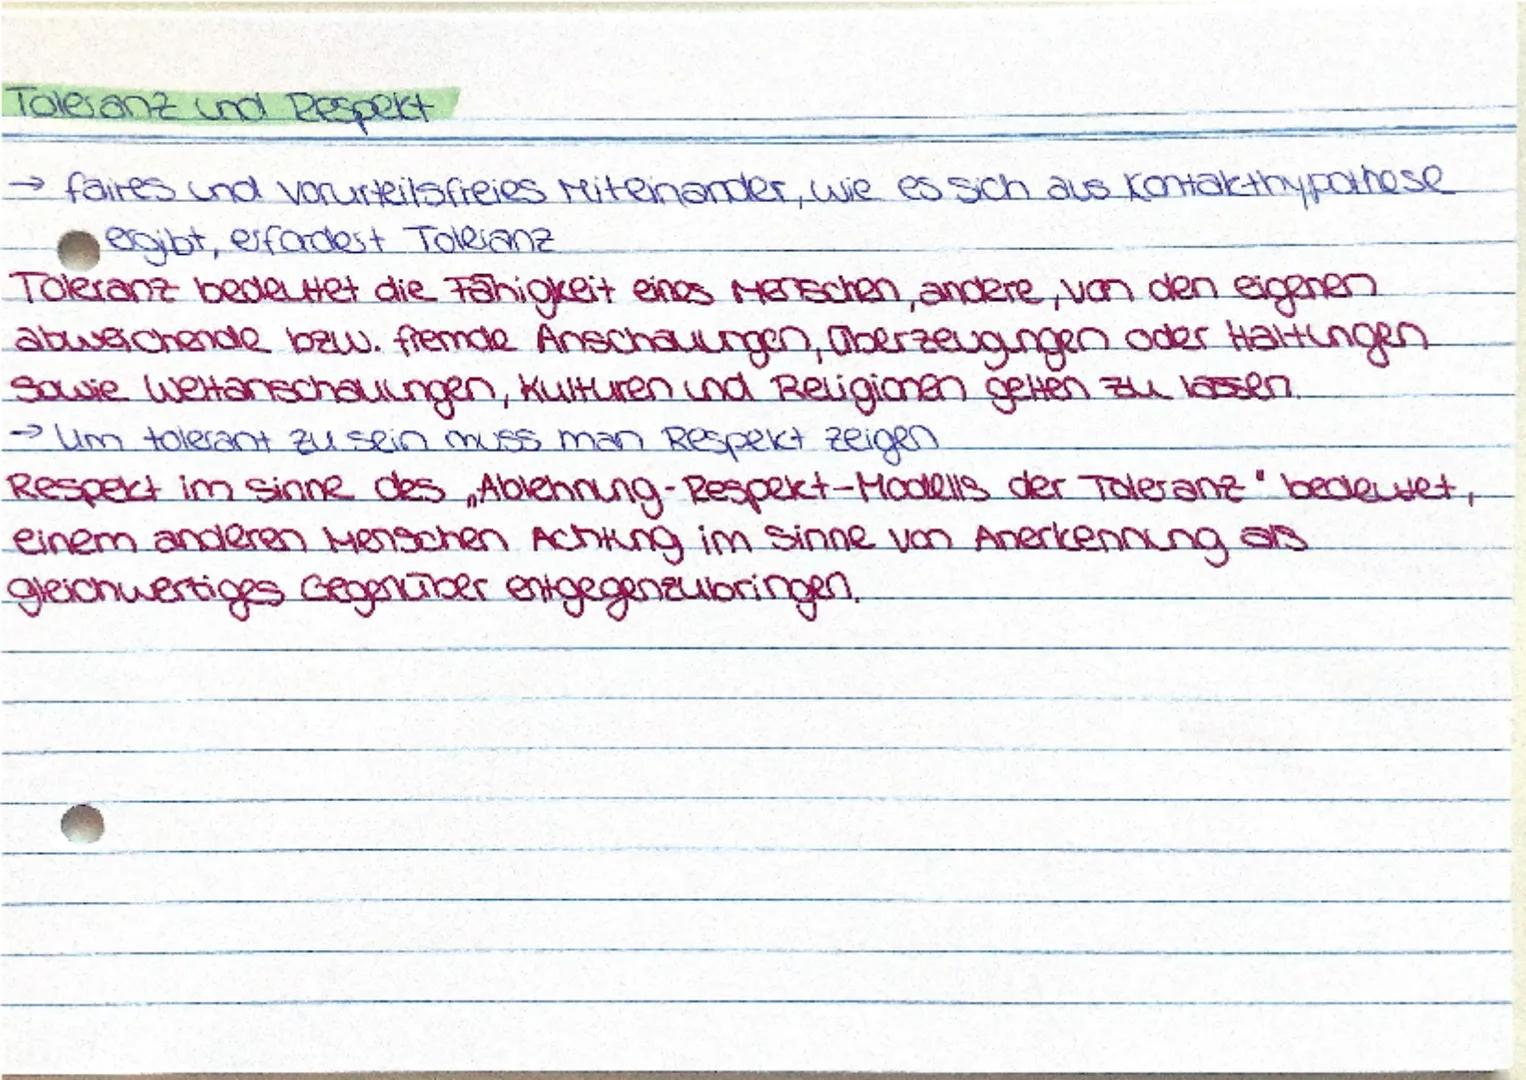 Toleranz und Respekt
→ faires und vorurteilsfreies Miteinander, wie es sich aus Kontakthypothese
ergibt, erfordert Toleranz
Toleranz bedeutet die Fähigkeit eines Menschen, andere, von den eigenen
abweichende bzw. fremde Anschauungen, Überzeugungen oder Haltungen
sowie Weltanschauungen, Kulturen und Religionen gelten zu lassen.
→ Um tolerant zu sein muss man Respekt zeigen
Respekt im Sinne des „Ablehnung-Respekt-Modells der Toleranz" bedeutet,
einem anderen Menschen Achtung im Sinne von Anerkennung als
gleichwertiges Gegenüber entgegenzubringen.